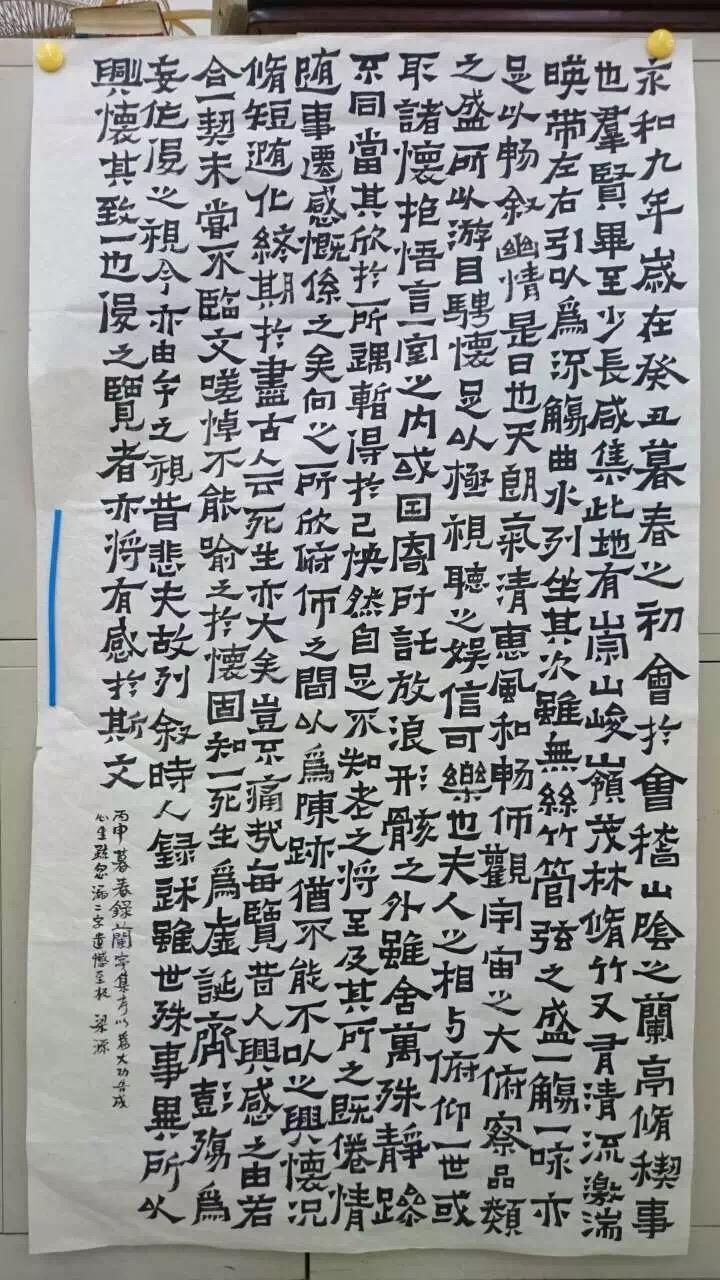 永和九年歲在癸丑暮春之初會於會稽山陰之蘭亭脩稧事
也羣賢畢至少長咸集此地有崇山峻嶺茂林脩竹又有清流激湍
暎带左右引以為流觴曲水列坐其次雖無絲竹管弦之盛一觴一咏亦
足以畅叙幽情是日也天朗氣清恵風和畅仰觀宇宙之大俯察品類
之盛所以游目騁懷足以極視聽之娱信可樂也夫人之相与俯仰一世或
取諸懷抱悟言一室之内或因寄所託放浪形骸之外雖舍萬殊靜躁
不同當其欣於所遇暫得於己怏然自足不知老之将至及其所之既倦情
随事遷感慨係之矣向之所欣俯仰之間以為陳跡猶不能不以之興懷况
脩短随化終期於盡古人云死生亦大矣豈不痛哉每覽昔人興感之由若
合一契未嘗不臨文嗟悼不能喻之於懷固知一死生為虛誕齊彭殤為
妄作後之視今亦由今之視昔悲夫故列叙時人録述雖世殊事異所以
興懷其致一也後之覽者亦将有感於斯文
丙申暮春録蘭亭集序以為大功告成
心生疏忽漏二字遺憾至极 梁源